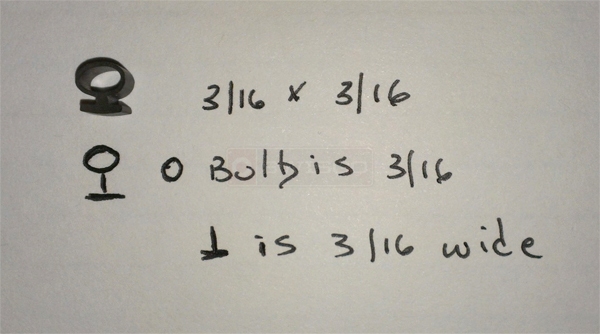 3/16 x 3/16
O Bulb is 3/16
⊥ is 3/16 wide